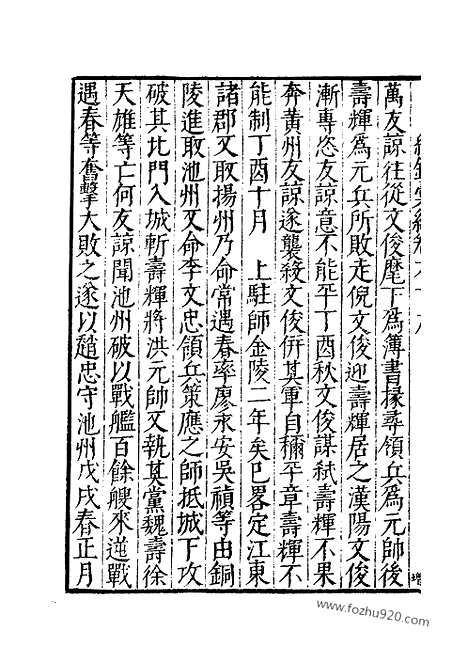 萬友諒往從文俊麾下爲簿書掾尋領兵爲元帥後
壽輝爲元兵所敗走倪文俊迎壽輝居之漢陽文俊
漸專恣友諒意不能平丁酉秋文俊謀弒壽輝不果
奔黄州友諒遂襲殺文俊併其軍自稱平章壽輝不
能制丁酉十月　上駐師金陵二年矣已畧定江東
諸郡又取揚州乃命常遇春率廖永安吳禎等由銅
陵進取池州又命李文忠領兵策應之師抵城下攻
破其北門入城斬壽輝將洪元帥又執其黨魏壽徐
天雄等亡何友諒聞池州破以戰艦百餘艘來逆戰
遇春等奮擊大敗之遂以趙忠守池州戊戌春正月
www.fozhu920.com